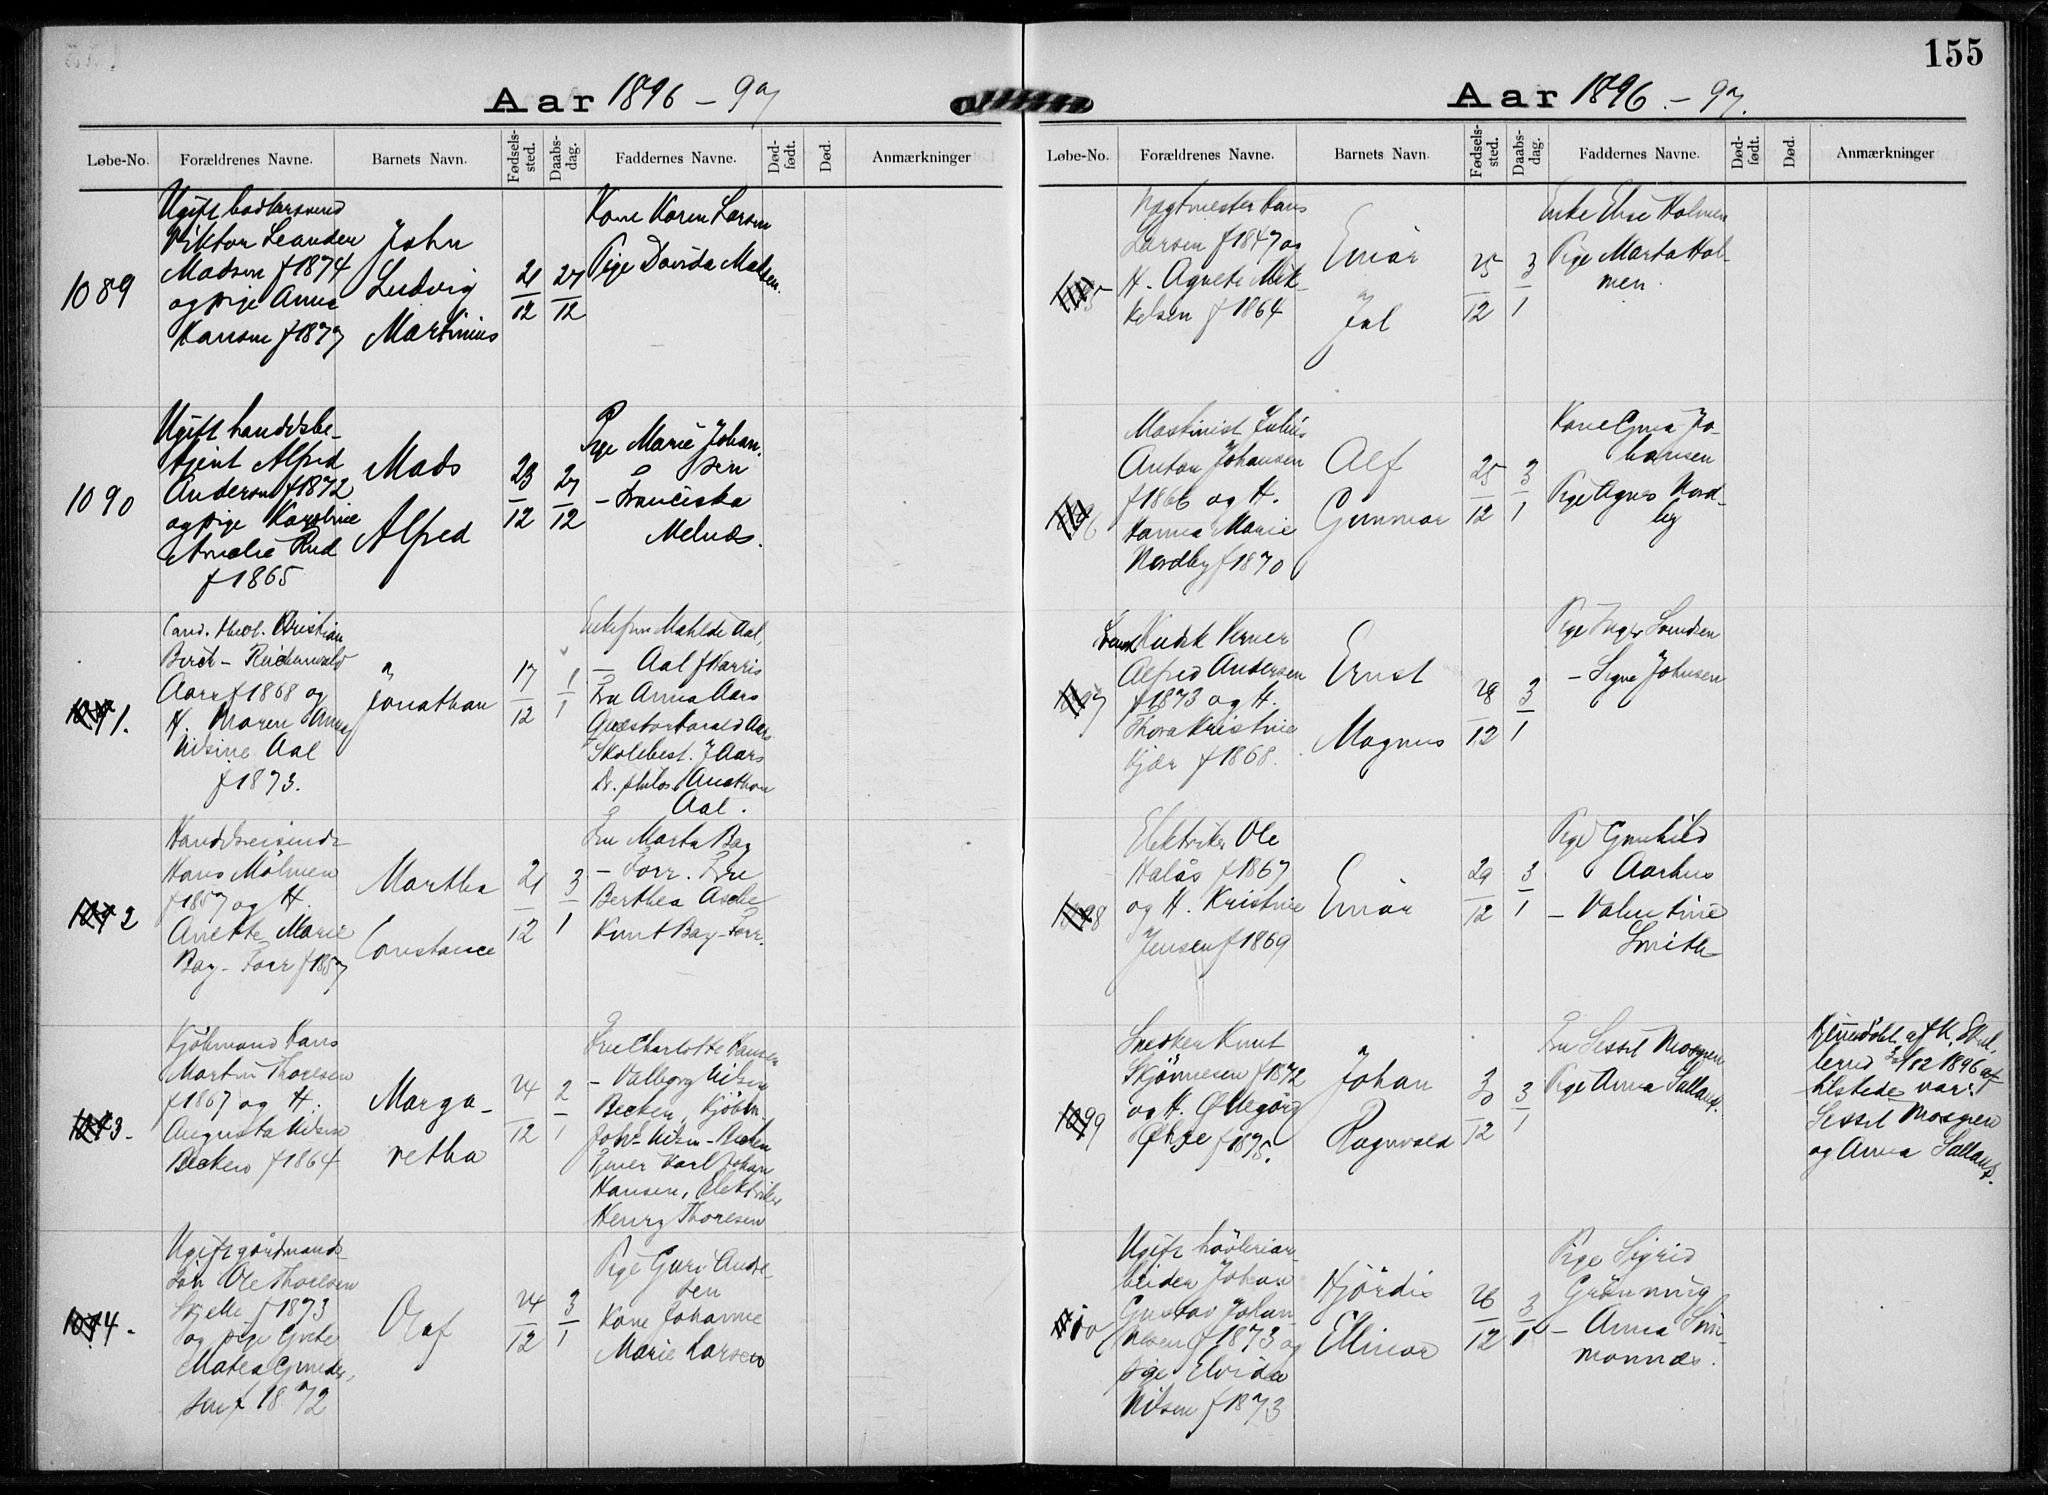 155
Aar 1896 – 97
Løbe-No. Forældrenes Navne. Barnets Navn. Fødsels-sted. Daabs-dag. Faddernes Navne. Død-født. Død. Anmærkninger
1089
Ugift
Viktor Leander
Madsen f 1874
og pige Anna
Hansen f 1877
John
Ludvig
Martinius
21/12
27/12
Kone Karen Larsen
Pige Davida Madsen.
1090
Ugift handelsbe-
tjent Alfred
Andersen f 1872
og pige Karoline
Amelie Rud
f 1865
Mads
Alfred
23/12
27/12
Pige Marie Johan-
sen
– Franciska
Melnæs.
1.
Cand. theol. Kristian
Birch-Reichenwald
Aars f 1868 og
H. Maren Anna
Nilsine Aal
f 1873.
Jonathan
17/12
1/1
Enkefru Mahilde Aal,
– Aal f Harris
Fru Anna Aars
Quæstor Harald Aars
Skolebest. J Aars
Dr. philos Anathon
Aal.
2
Handelsreisende
Hans Mölmen
f 1857 og H.
Anette Marie
Bay-Torr f 1857
Martha
Constance
21/12
3/1
Fru Marta Bay
– Torr. Fru
Berthea Asche
Knut Bay-Torr.
3.
Kjøbmand Hans
Martin Thoresen
f 1867 og H.
Augusta Nilsen
Becken f 1864
Marga-
retha
24/12
2/1
Fru Charlotte Hansen
– Valborg Nilsen
Becken, Kjøbm.
Johs Nilsen-Becken
Karl Johan
Hansen, Elektriker
Henry Thoresen
4.
Ugift gårdmands-
søn Ole Thoresen
f 1873
og pige Grete
Matea Gunder-
sen f 1872
Olaf
24/12
3/1
Pige Guri Ande-
sen
Kone Johanne
Marie Larsen
Aar 1896. – 97.
Løbe-No. Forældrenes Navne. Barnets Navn. Fødsels-sted. Daabs-dag. Faddernes Navne. Død-født. Død. Anmærkninger
5
Vagtmester Hans
Larsen f 1847 og
H. Agnete Mik-
kelsen f 1864
Einar
Jul
25/12
3/1
Enke Else Holmen
Pige Marta Hol-
men.
6
Maskinist Julius
Anton Johansen
f 1866 og H.
Hanna Marie
Nordby f 1870
Alf
Gunnar
25/12
3/1
Kone Gina Jo-
hansen
Pige Agnes Nord-
by
7
Verner
Alfred Andersen
f 1873 og H.
Thora Kristine
Kjær f 1868.
Ernst
Magnus
28/12
3/1
Pige Inga Svendsen
– Signe Johnsen
98
Elektriker Ole
Halås f 1867
og H. Kristine
Jensen f 1869
Einar
29/12
3/1
Pige Gunhild
Aarhus
– Valentine
Smith
99
Snedker Knut
Skjönnesen f 1872
og H.
f 1875.
Johan
Ragnvald
30/12
3/1
Fru Sessel Mosgren
Pige Anna Salland.
Hjemmedøbt af K.
1896 af
tilstede var:
Sessel Mosgren
og Anna Salland.
Ugift høvleriar-
beider Johan
Gustav Johan-
nesen f 1873 og
pige Elvida
Nilsen f 1873
Hjördis
Ellinor
26/12
3/1
Pige Sigrid
Grönning
– Anna Sim-
monnæs.